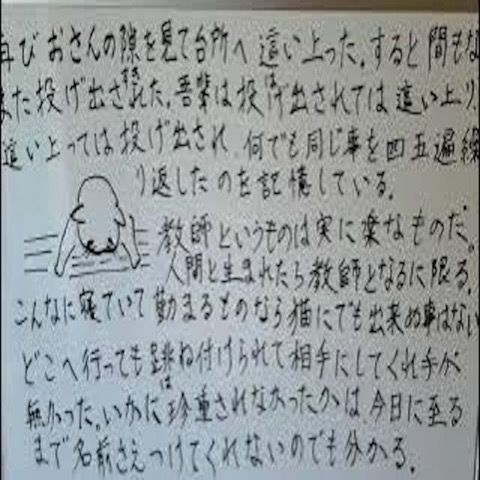 再びおさんの隙を見て台所へ這い上った。すると間もな
また投げ出された。吾輩は投げ出されては這い上り、
這い上っては投げ出され、何でも同じ事を四五遍繰
り返したのを記憶している。
教師というものは実に楽なものだ。
人間と生まれたら教師となるに限る。
こんなに寝ていて勤まるものなら猫にでも出来ぬ事はない
どこへ行っても跳ね付けられて相手にしてくれ手が
無かった。いかに珍重されなかったかは、今日に至る
まで名前さえつけてくれないのでも分かる。